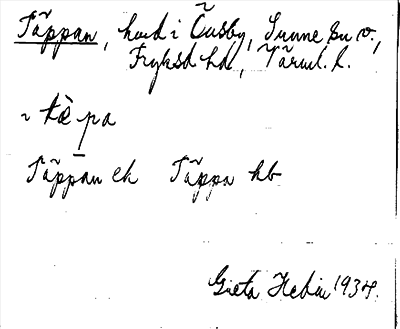 Täppan, hud i Åsby, Sunne sn v.,
Fryksd hd, Värml. l.
tæ̀pa
Täppan ek Täppa hb
Greta Hedin 1934.